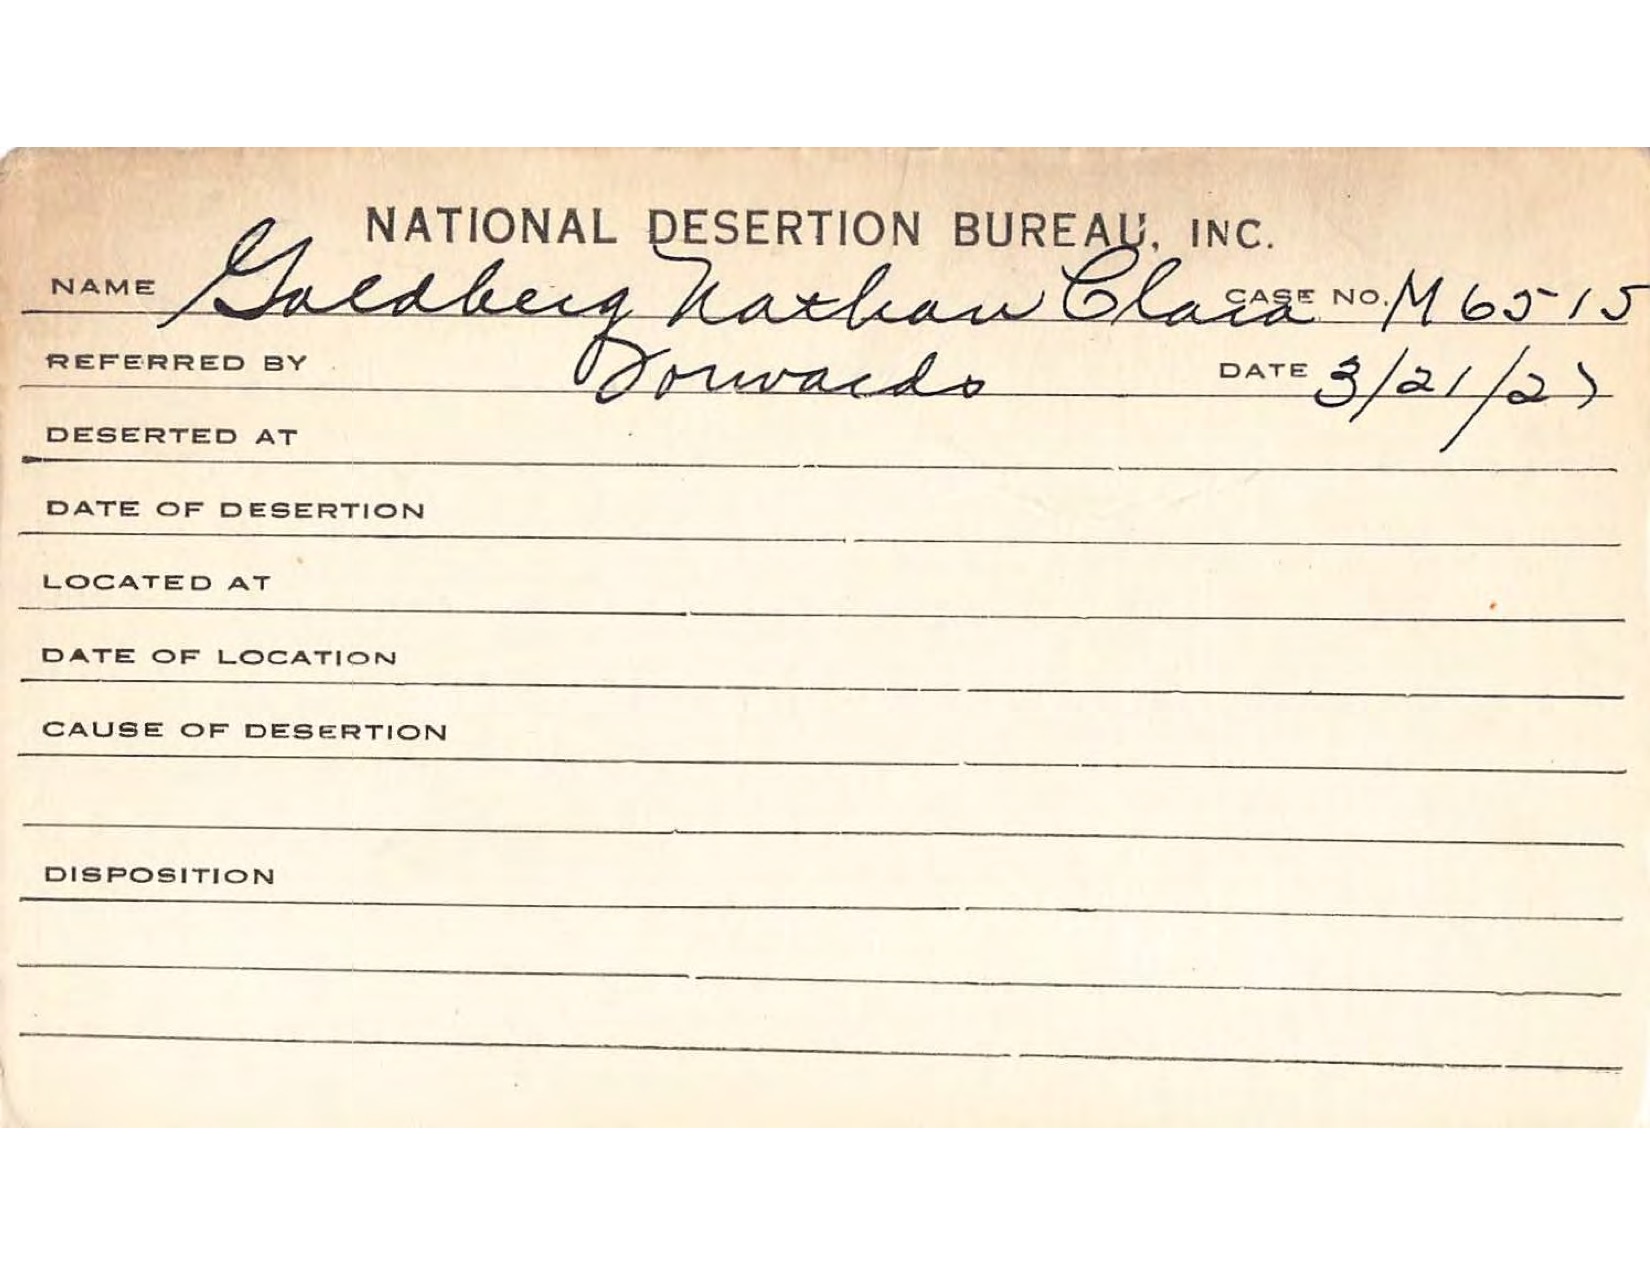 NATIONAL DESERTION BUREAU, INC.
NAME Goldberg Nathan Clara CASE NO. M 6515
REFERRED BY Forwards DATE 3/21/27
DESERTED AT
DATE OF DESERTION
LOCATED AT
DATE OF LOCATION
CAUSE OF DESERTION
DISPOSITION